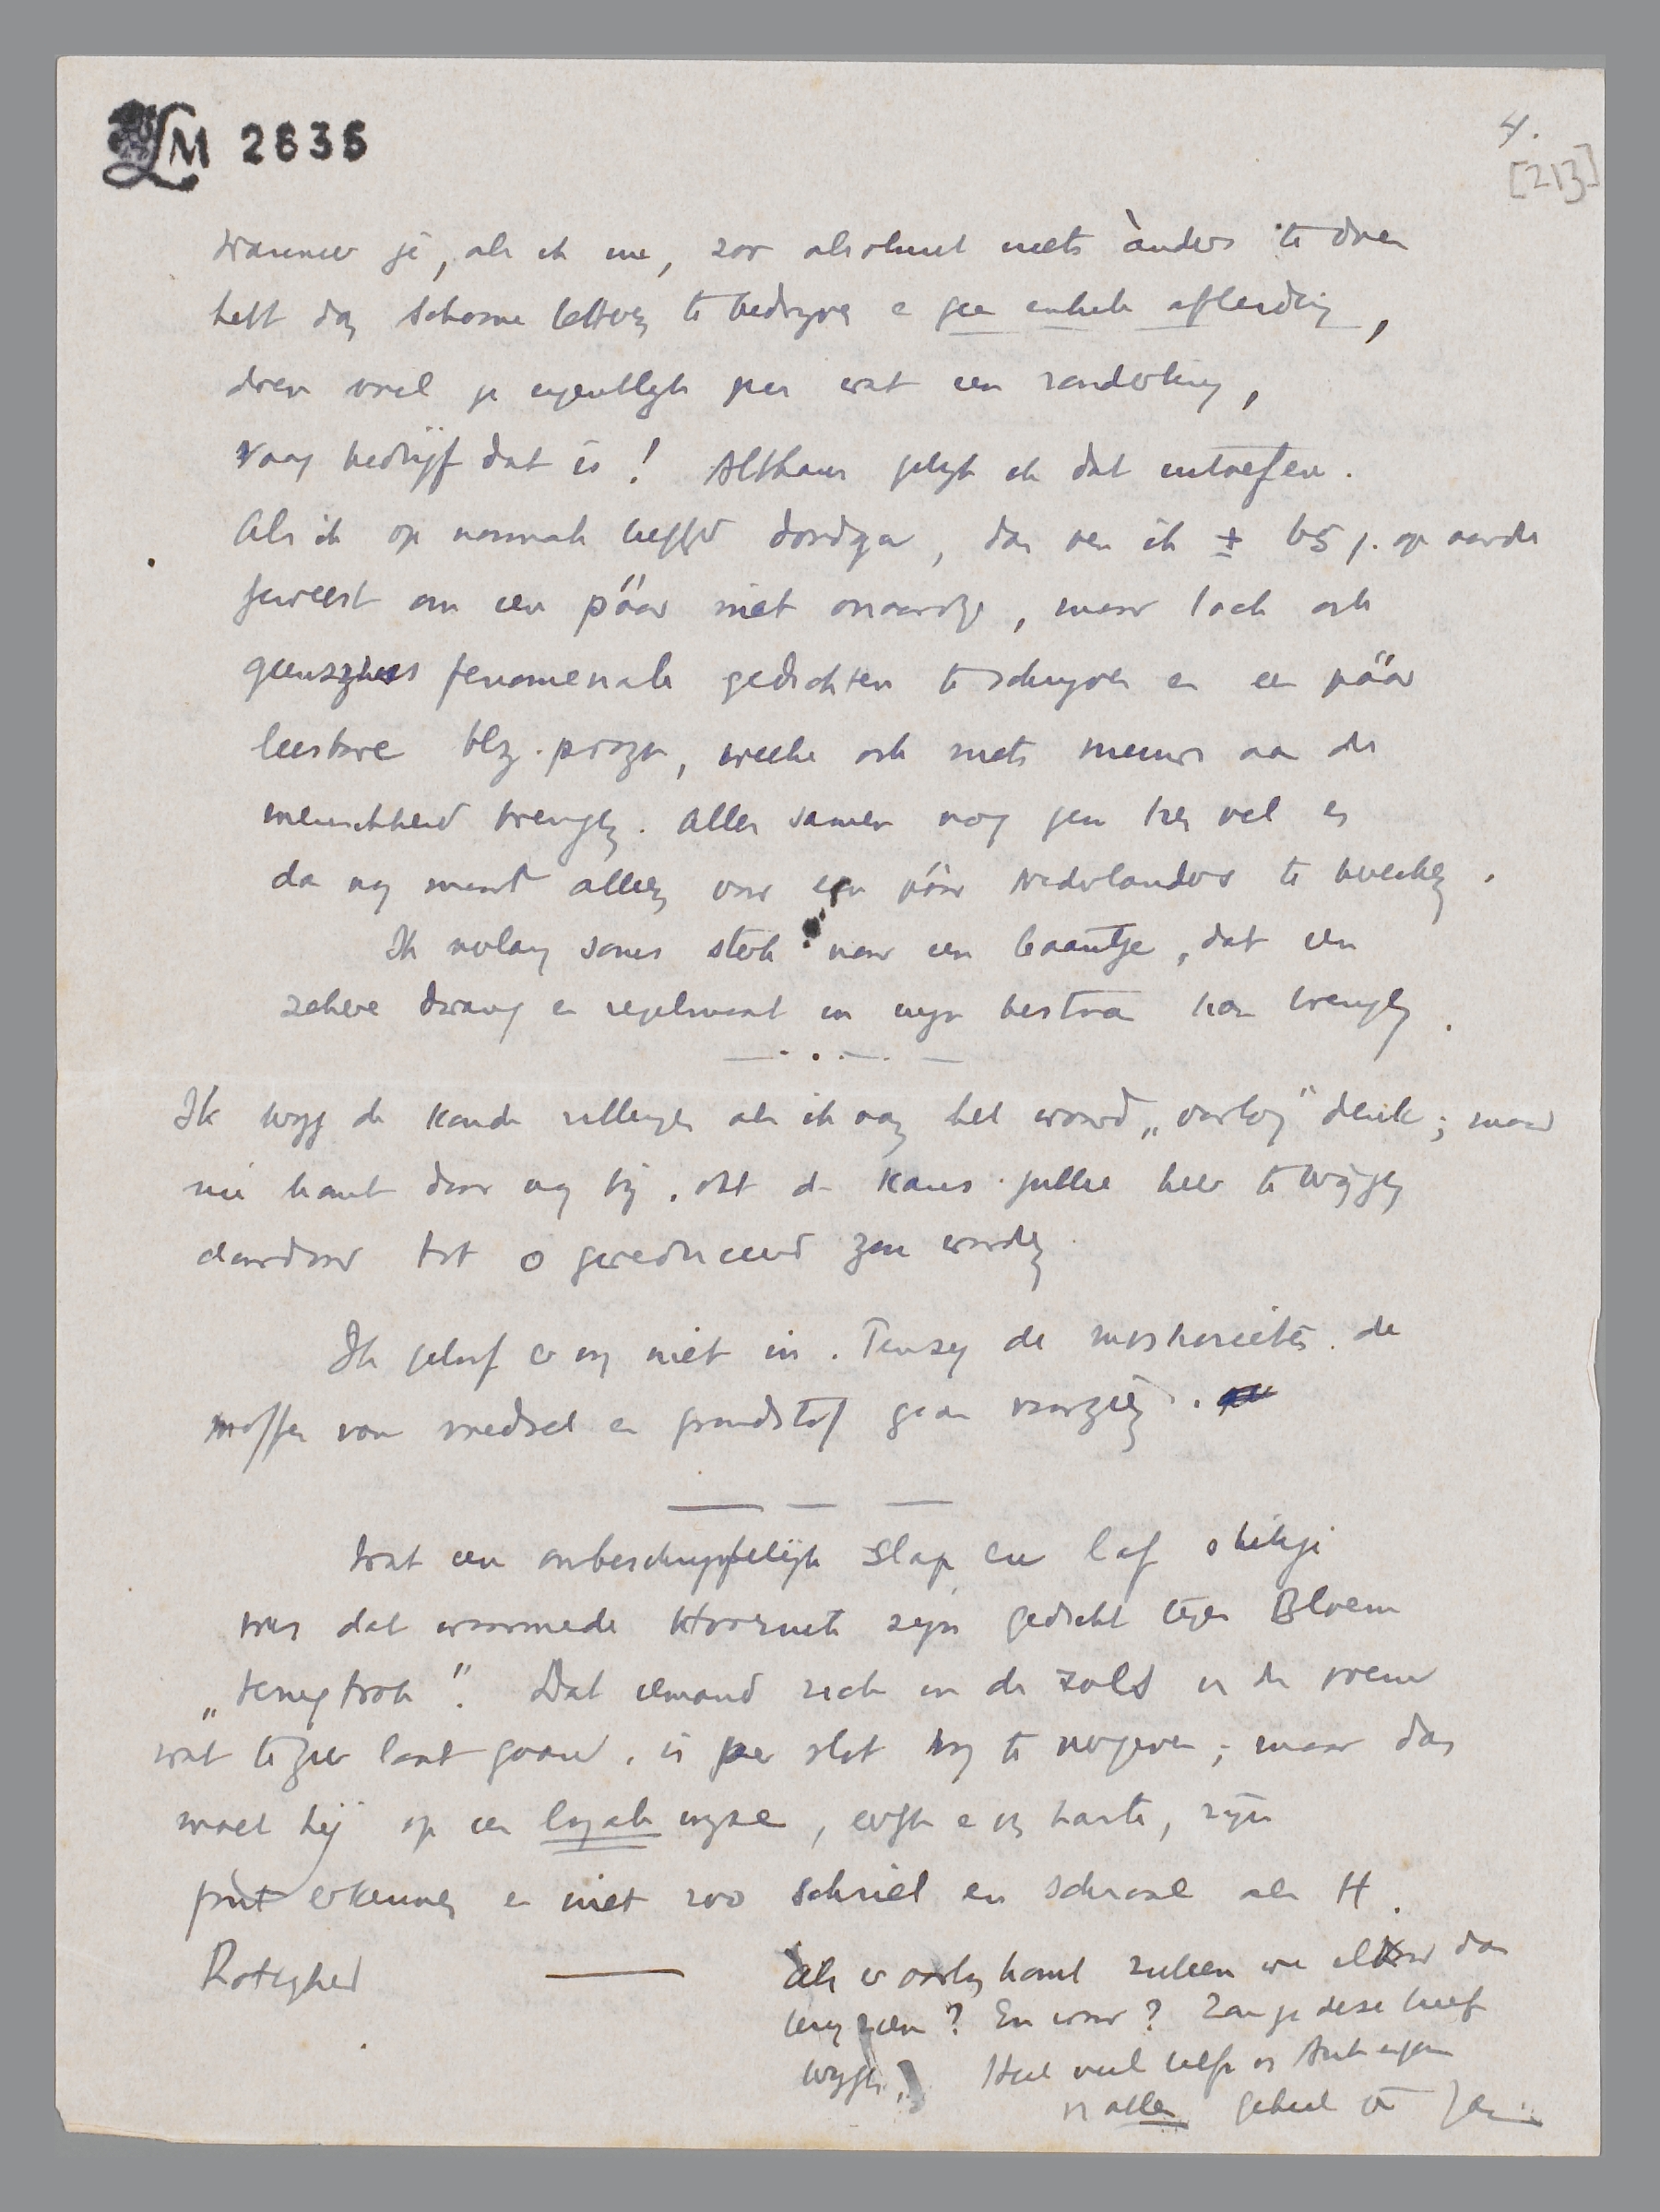 LM 2636
4.
[213]
wanneer je, als ik nu, zoo absoluut niets ànders te doen
hebt dan schoone letteren te bedrijven en geen enkele afleiding,
dan voel je eigenlijk pas wat een zonderling,
vaag bedrijf dat is! Althans gelijk ik dat uitoefen.
Als ik op normale leeftijd doodga, dan ben ik ± 65 j. op aarde
geweest om een páár niet onaardige, maar toch ook
geenszins fenomenale gedichten te schrijven en een páár
leesbare blz. proza, welke ook niets nieuws aan de
menschheid brengen. Alles samen nog geen tien vel en
dan nog meest alleen voor een páár Nederlanders te
Ik verlang soms sterk naar een baantje, dat een
zekere dwang en regelmaat in mijn bestaan kan brengen.
Ik krijg de koude rillingen als ik aan het woord „oorlog" denk; maar
nu komt daar nog bij, dat de kans jullie hier te krijgen
daardoor tot 0 gereduceerd zou worden
Ik geloof er nog niet in. Tenzij de moskovieten de
moffen van voedsel en grondstof gaan voorzien.
Wat een onbeschrijfelijk slap en laf stukje
was dat waarmede Hoornik zijn gedicht tegen Bloem
„terugtrok". Dat iemand zich in de
wat te ver laat gaan, is per slot nog te vergeven; maar dan
moet hij op een loyale wijze, eerlijk en van harte, zijn
fout erkennen en niet zoo schriel en schraal als H.
Als er oorlog komt zullen we elkaar dan
terug zien? En waar? Zou je deze brief
krijgen? Heel veel liefs en
en alles geheel je